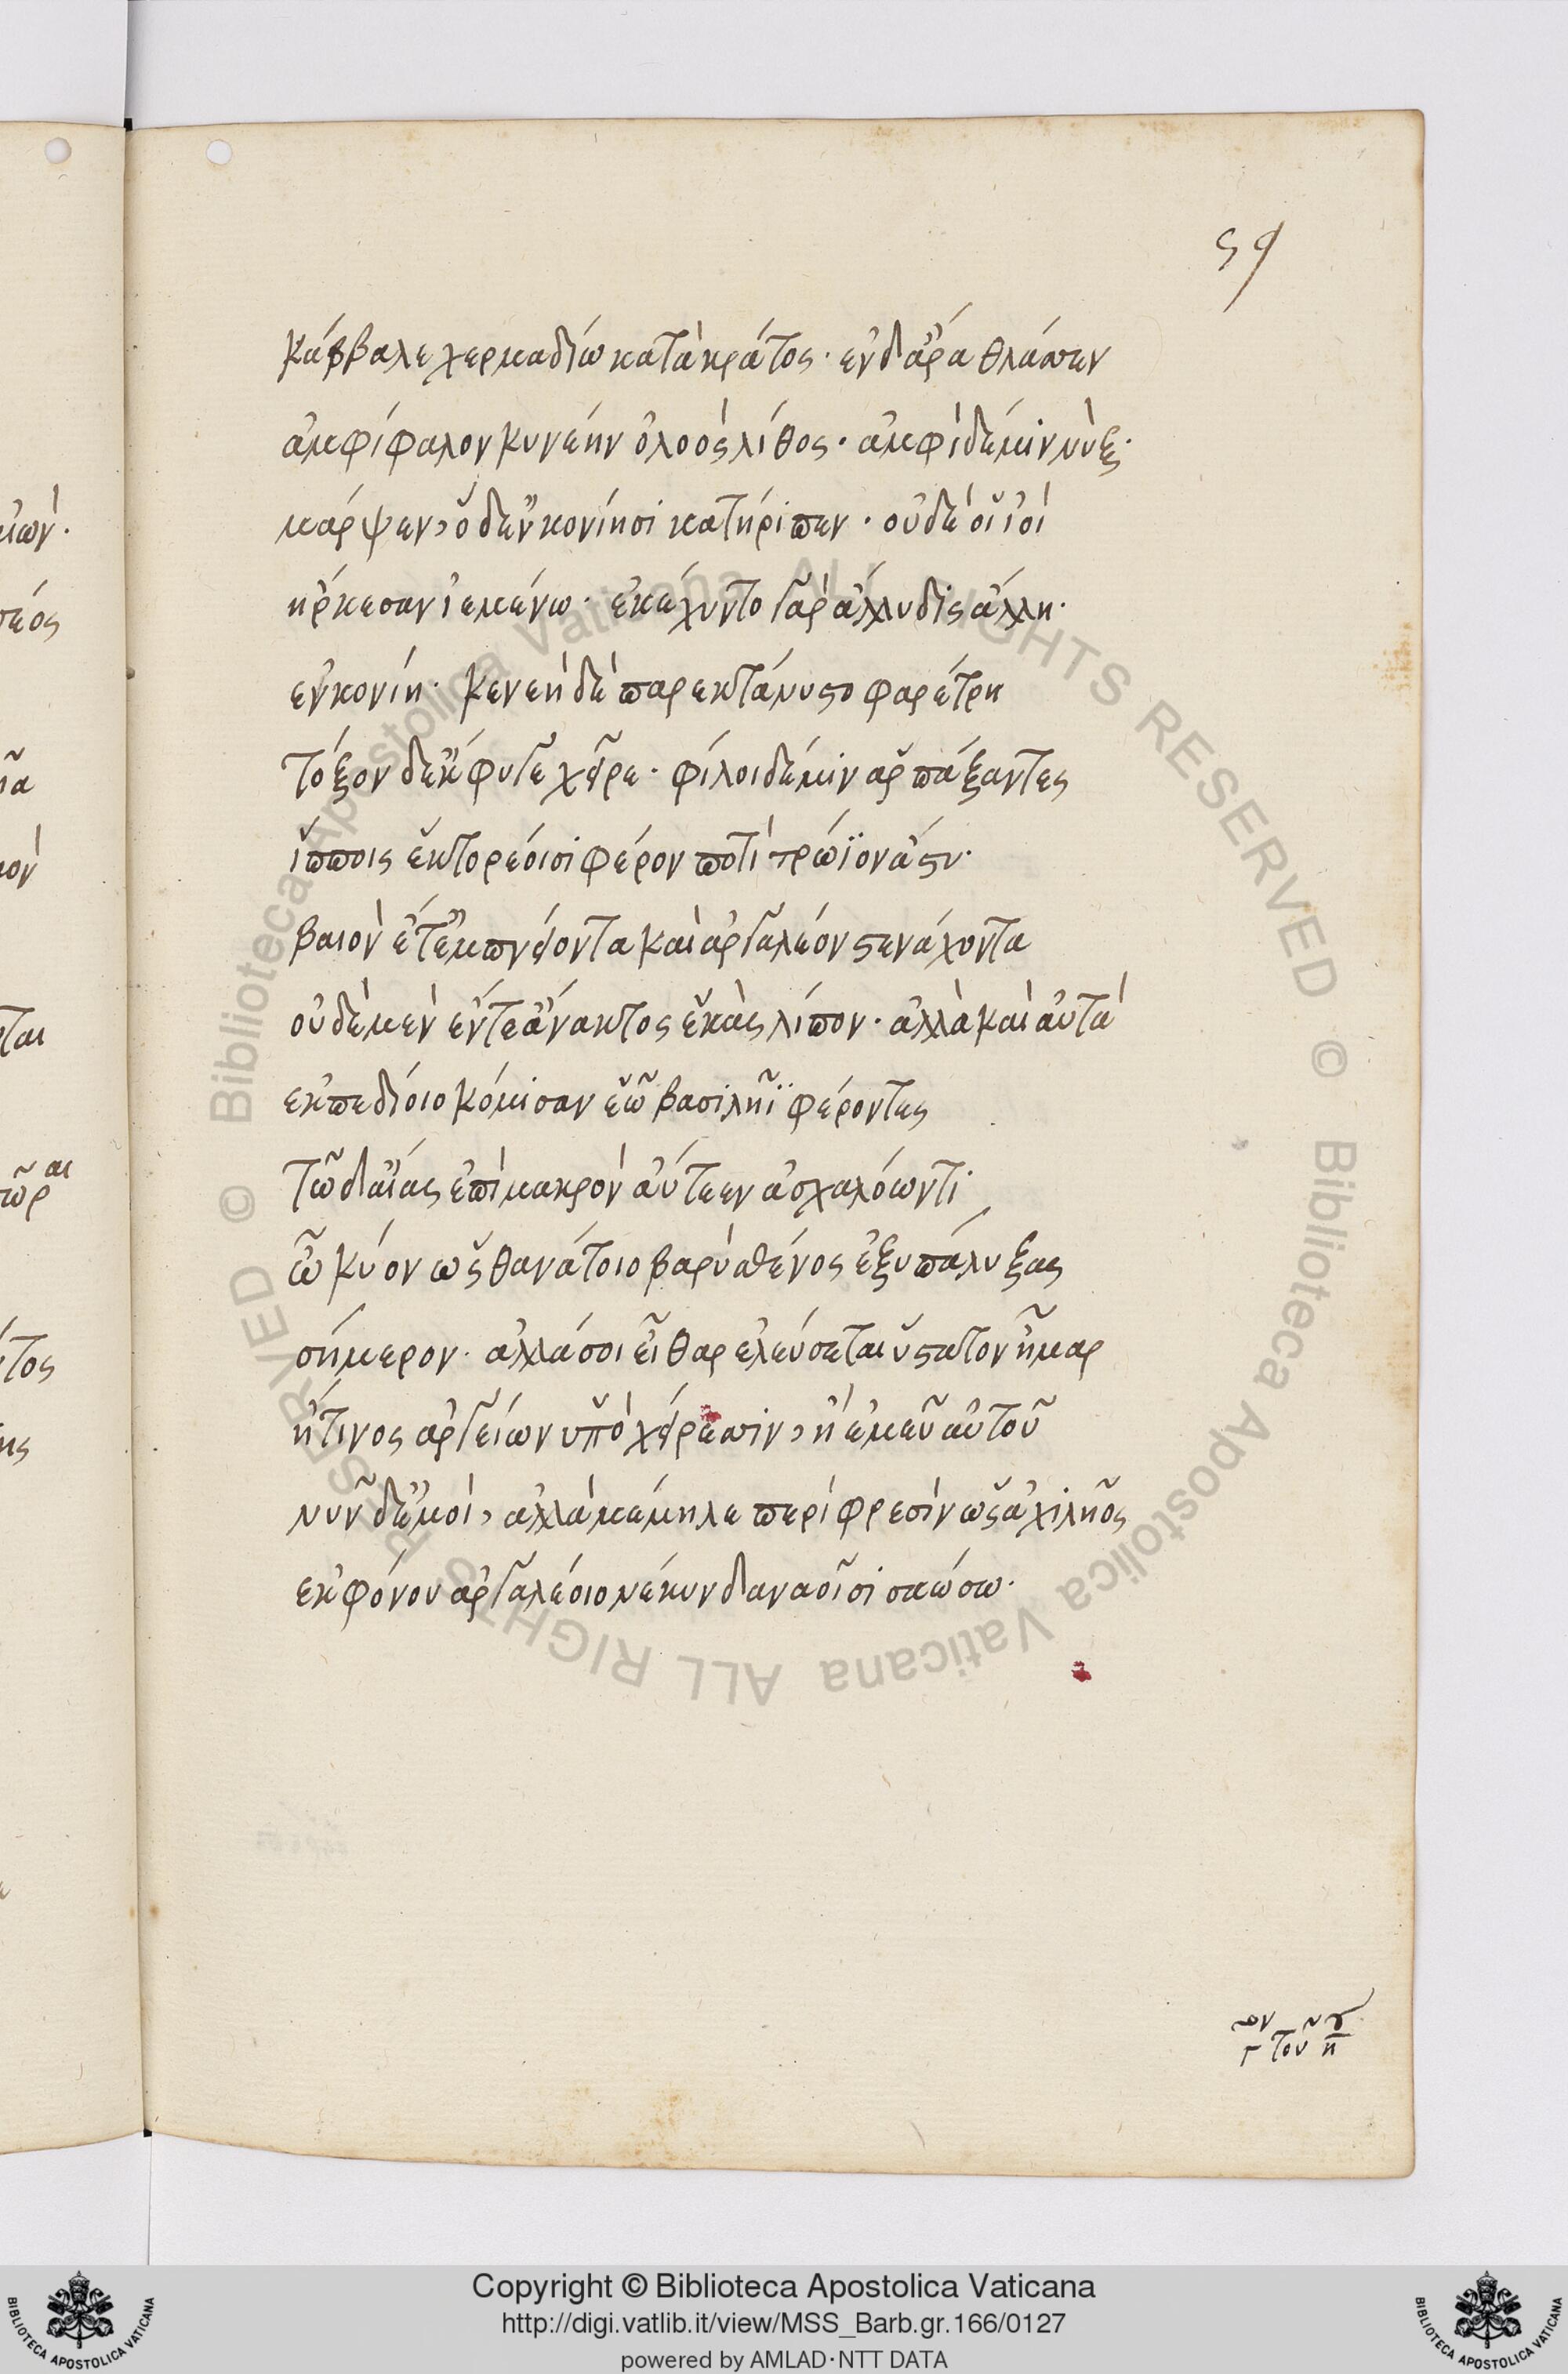 59
κάββαλε χερμαδίω κατὰ κράτος· ἐν δ' ἄρα θλάσσεν
ἀμφίφαλον κυνέην ὀλοὸς λίθος· ἀμφὶ δέ μιν νὺξ·
μάρψεν, ὃ δ' ἐν κονίησι κατήριπεν· οὐδέ οἱ ἰοὶ
ἤρκεσαν ἱεμένω· ἐκέχυντο γὰρ ἄλλυδις ἄλλη·
ἐν κονίη· κενεὴ δὲ παρεκτάνυστο φαρέτρη
τόξον δ' ἔκφυγε χεῖρε· φίλοι δέ μιν ἁρπάξαντες
ἵπποις ἑκτορέοισι φέρον ποτὶ τρώϊον ἄστυ·
βαιὸν ἔτ' ἐμπνείοντα καὶ ἀργαλέον στενάχοντα
οὐδὲ μὲν ἔντε' ἄνακτος ἑκὰς λίπον· ἀλλὰ καὶ αὐτὰ
ἐκ πεδίοιο κόμισαν ἑῶ βασιλῆϊ φέροντες
τῶ δ' αἴας ἐπὶ μακρὸν ἀύτεεν ἀσχαλόωντι
ὦ κύον ὡς θανάτοιο βαρὺ σθένος ἐξυπάλυξας
σήμερον· ἀλλά σοι εἶθαρ ἐλεύσεται ὕστατον ἦμαρ
ἤ τινος ἀργείων ὑπὸ χείρεσσιν, ἢ ἐμεῦ αὐτοῦ
νῦν δ' ἐμοὶ, ἀλλὰ μέμηλε περὶ φρεσὶν ὡς ἀχιλῆος
ἐκ φόνου ἀργαλέοιο νέκυν δαναοῖσι σαώσω·
Copyright © Biblioteca Apostolica Vaticana
http://digi.vatlib.it/view/MSS_Barb.gr.166/0127
powered by AMLAD·NTT DATA
© Biblioteca Apostolica Vaticana ALL RIGHTS RESERVED © Biblioteca Apostolica Vaticana ALL RIGHTS RESERVED
BIBLIOTECA APOSTOLICA VATICANA
BIBLIOTECA APOSTOLICA VATICANA